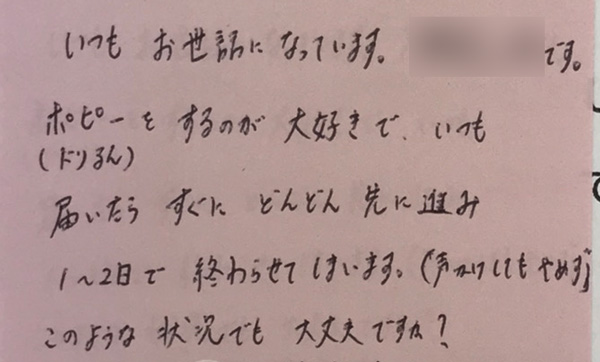 いつも お世話になっています。 です。
ポピーを するのが 大好きで、いつも
(ドリるん)
届いたら すぐに どんどん 先に 進み
1〜2日で 終わらせてしまいます。(声かけしてもやめず)
このような 状況でも 大丈夫ですか?